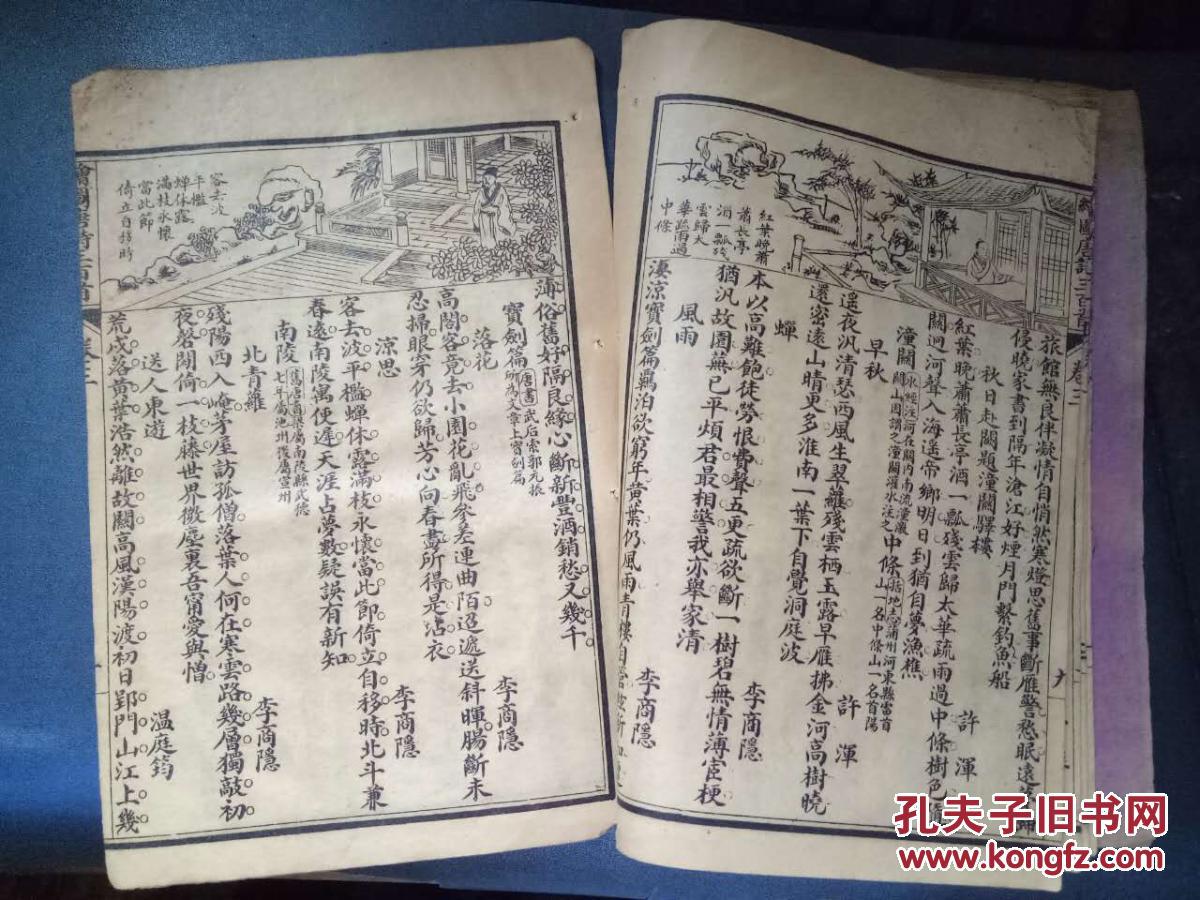 紅葉晚蕭
蕭長亭
酒一瓢殘
雲歸太
華疏雨過
中條
旅館無良伴凝情自悄然寒燈思舊事斷雁警愁眠遠
侵曉家書到隔年滄江好煙月門繫釣魚船
秋日赴闕題潼關驛樓 許渾
紅葉晚蕭蕭長亭酒一瓢殘雲歸太華疏雨過中條樹色
關迥河聲入海遙帝鄉明日到猶自夢漁樵
潼關水經注河在關內南流潼激關山因謂之潼關灌水注之中條山一名中條山一名首陽
早秋 許渾
遥夜汎清瑟西風生翠蘿殘雲栖玉露早雁拂金河高樹曉
還密遠山晴更多淮南一葉下自覺洞庭波
蟬 李商隱
本以高難飽徒勞恨費聲五更疏欲斷一樹碧無情薄宦梗
猶汎故園蕪已平煩君最相警我亦舉家清
風雨 李商隱
淒涼寶劍篇羈泊欲窮年黃葉仍風雨青樓自
客去波
平檻
蟬休露
滿枝永懷
當此節
倚立自移時
薄俗舊好隔良緣心斷新豐酒銷愁又幾千
寶劍篇唐書武后索郭元振所為文章上寶劍篇
落花 李商隱
高閣客竟去小園花亂飛參差連曲陌迢遞送斜暉腸斷未
忍掃眼穿仍欲歸芳心向春盡所得是沾衣
涼思 李商隱
客去波平檻蟬休露滿枝永懷當此節倚立自移時北斗兼
春遠南陵寓使遲天涯占夢數疑誤有新知
南陵舊唐書南陵縣武德七年屬池州後屬宣州
北青蘿 李商隱
殘陽西入崦茅屋訪孤僧落葉人何在寒雲路幾層獨敲初
夜磬閒倚一枝藤世界微塵裏吾甯愛與憎
送人東遊 温庭筠
荒戍落黃葉浩然離故關高風漢陽渡初日郢門山江上幾
孔夫子旧书网
www.kongfz.com